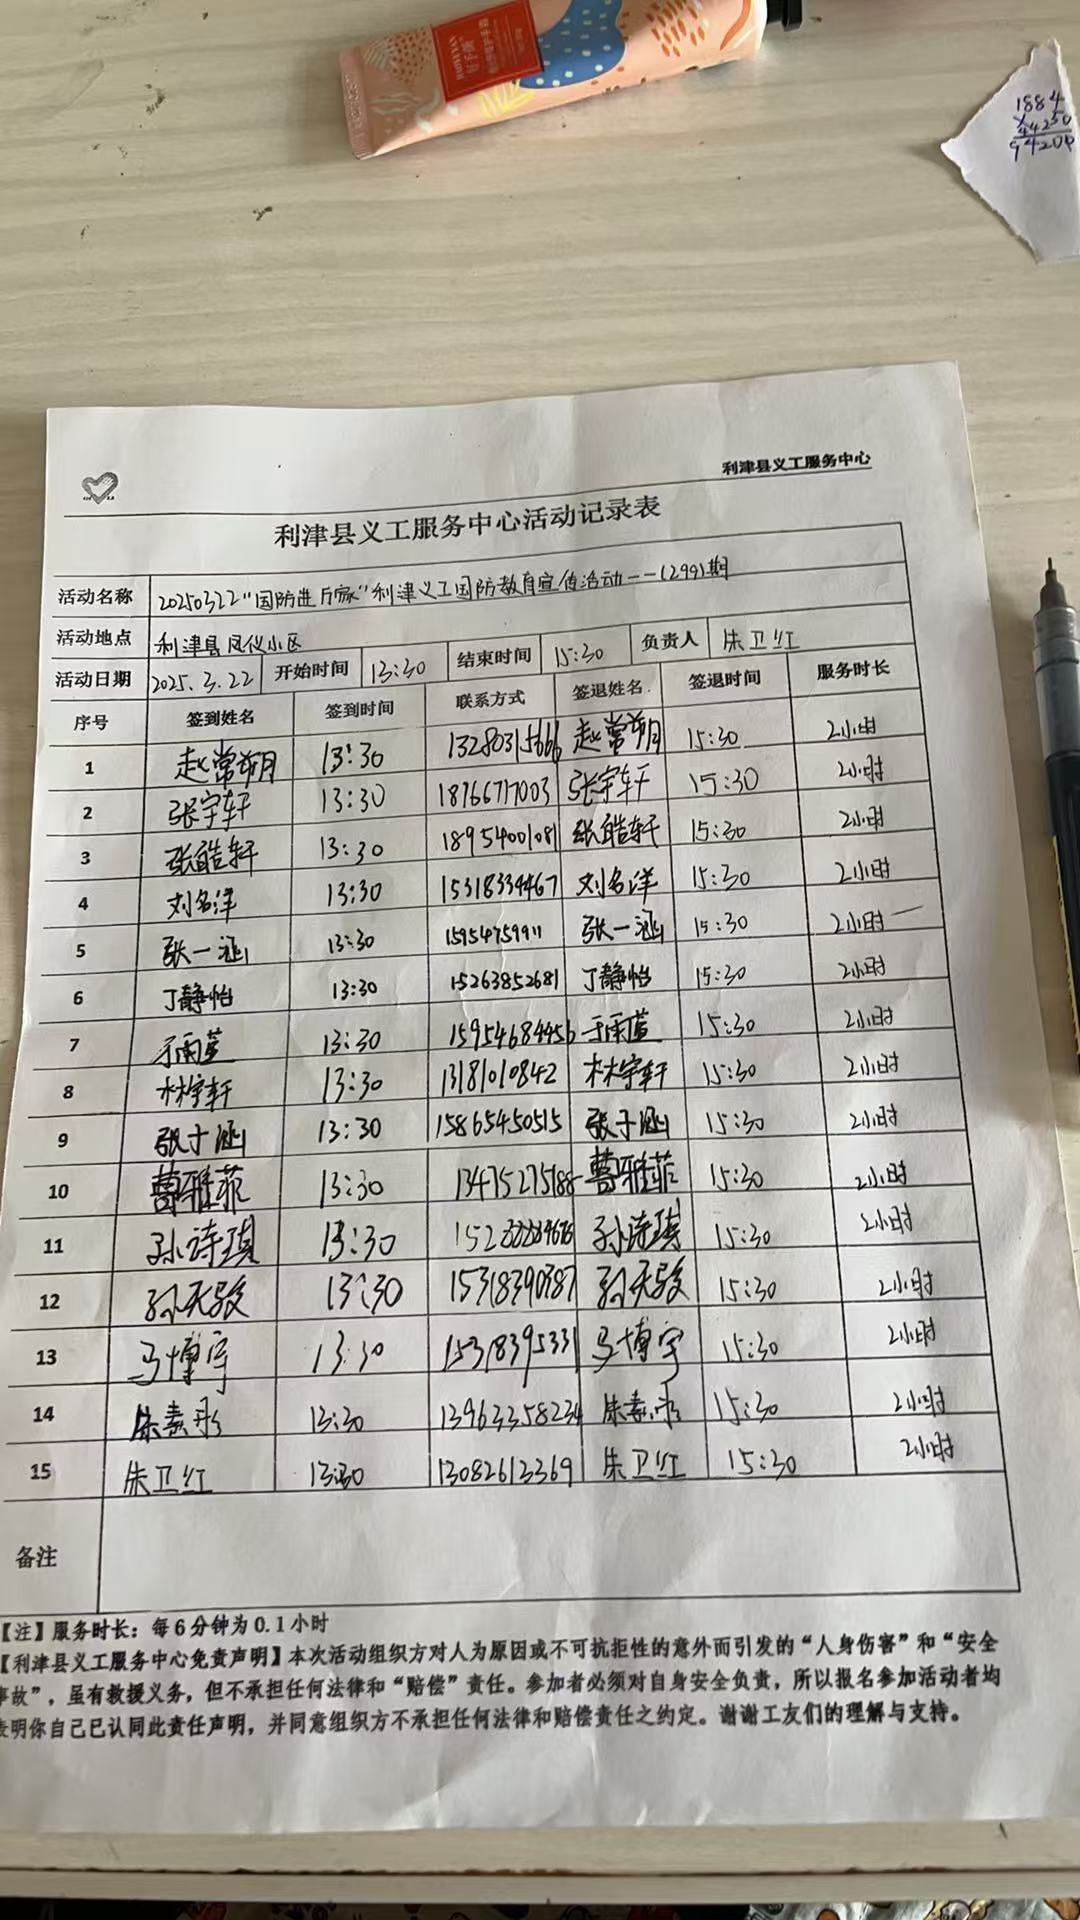 1884
94200
利津县义工服务中心
利津县义工服务中心活动记录表
活动名称 20250322“国防进万家”利津义工国防教育宣传活动——(299)期
活动地点 利津县凤仪小区
活动日期 2025.3.22 开始时间 13:30 结束时间 15:30 负责人 朱卫红
序号 签到姓名 签到时间 联系方式 签退姓名 签退时间 服务时长
1 赵常朔 13:30 13280315666 赵常朔 15:30 2小时
2 张宇轩 13:30 18766717003 张宇轩 15:30 2小时
3 张皓轩 13:30 18954001081 张皓轩 15:30 2小时
4 刘名洋 13:30 15318334467 刘名洋 15:30 2小时
5 张一涵 13:30 15954759911 张一涵 15:30 2小时
6 丁静怡 13:30 15263852681 丁静怡 15:30 2小时
7 于雨萱 13:30 15954684456 于雨萱 15:30 2小时
8 林宇轩 13:30 13181010842 林宇轩 15:30 2小时
9 张子涵 13:30 15865450515 张子涵 15:30 2小时
10 曹雅菲 13:30 13475275188 曹雅菲 15:30 2小时
11 孙诗琪 13:30 孙诗琪 15:30 2小时
12 孙天骏 13:30 15318390387 孙天骏 15:30 2小时
13 马博宇 13:30 15318395331 马博宇 15:30 2小时
14 朱素彤 13:30 13963358234 朱素彤 15:30 2小时
15 朱卫红 13:30 13082613369 朱卫红 15:30 2小时
备注
【注】服务时长：每6分钟为0.1小时
【利津县义工服务中心免责声明】本次活动组织方对人为原因或不可抗拒性的意外而引发的“人身伤害”和“安全
事故”，虽有救援义务，但不承担任何法律和“赔偿”责任。参加者必须对自身安全负责，所以报名参加活动者均
表明你自己已认同此责任声明，并同意组织方不承担任何法律和赔偿责任之约定。谢谢工友们的理解与支持。